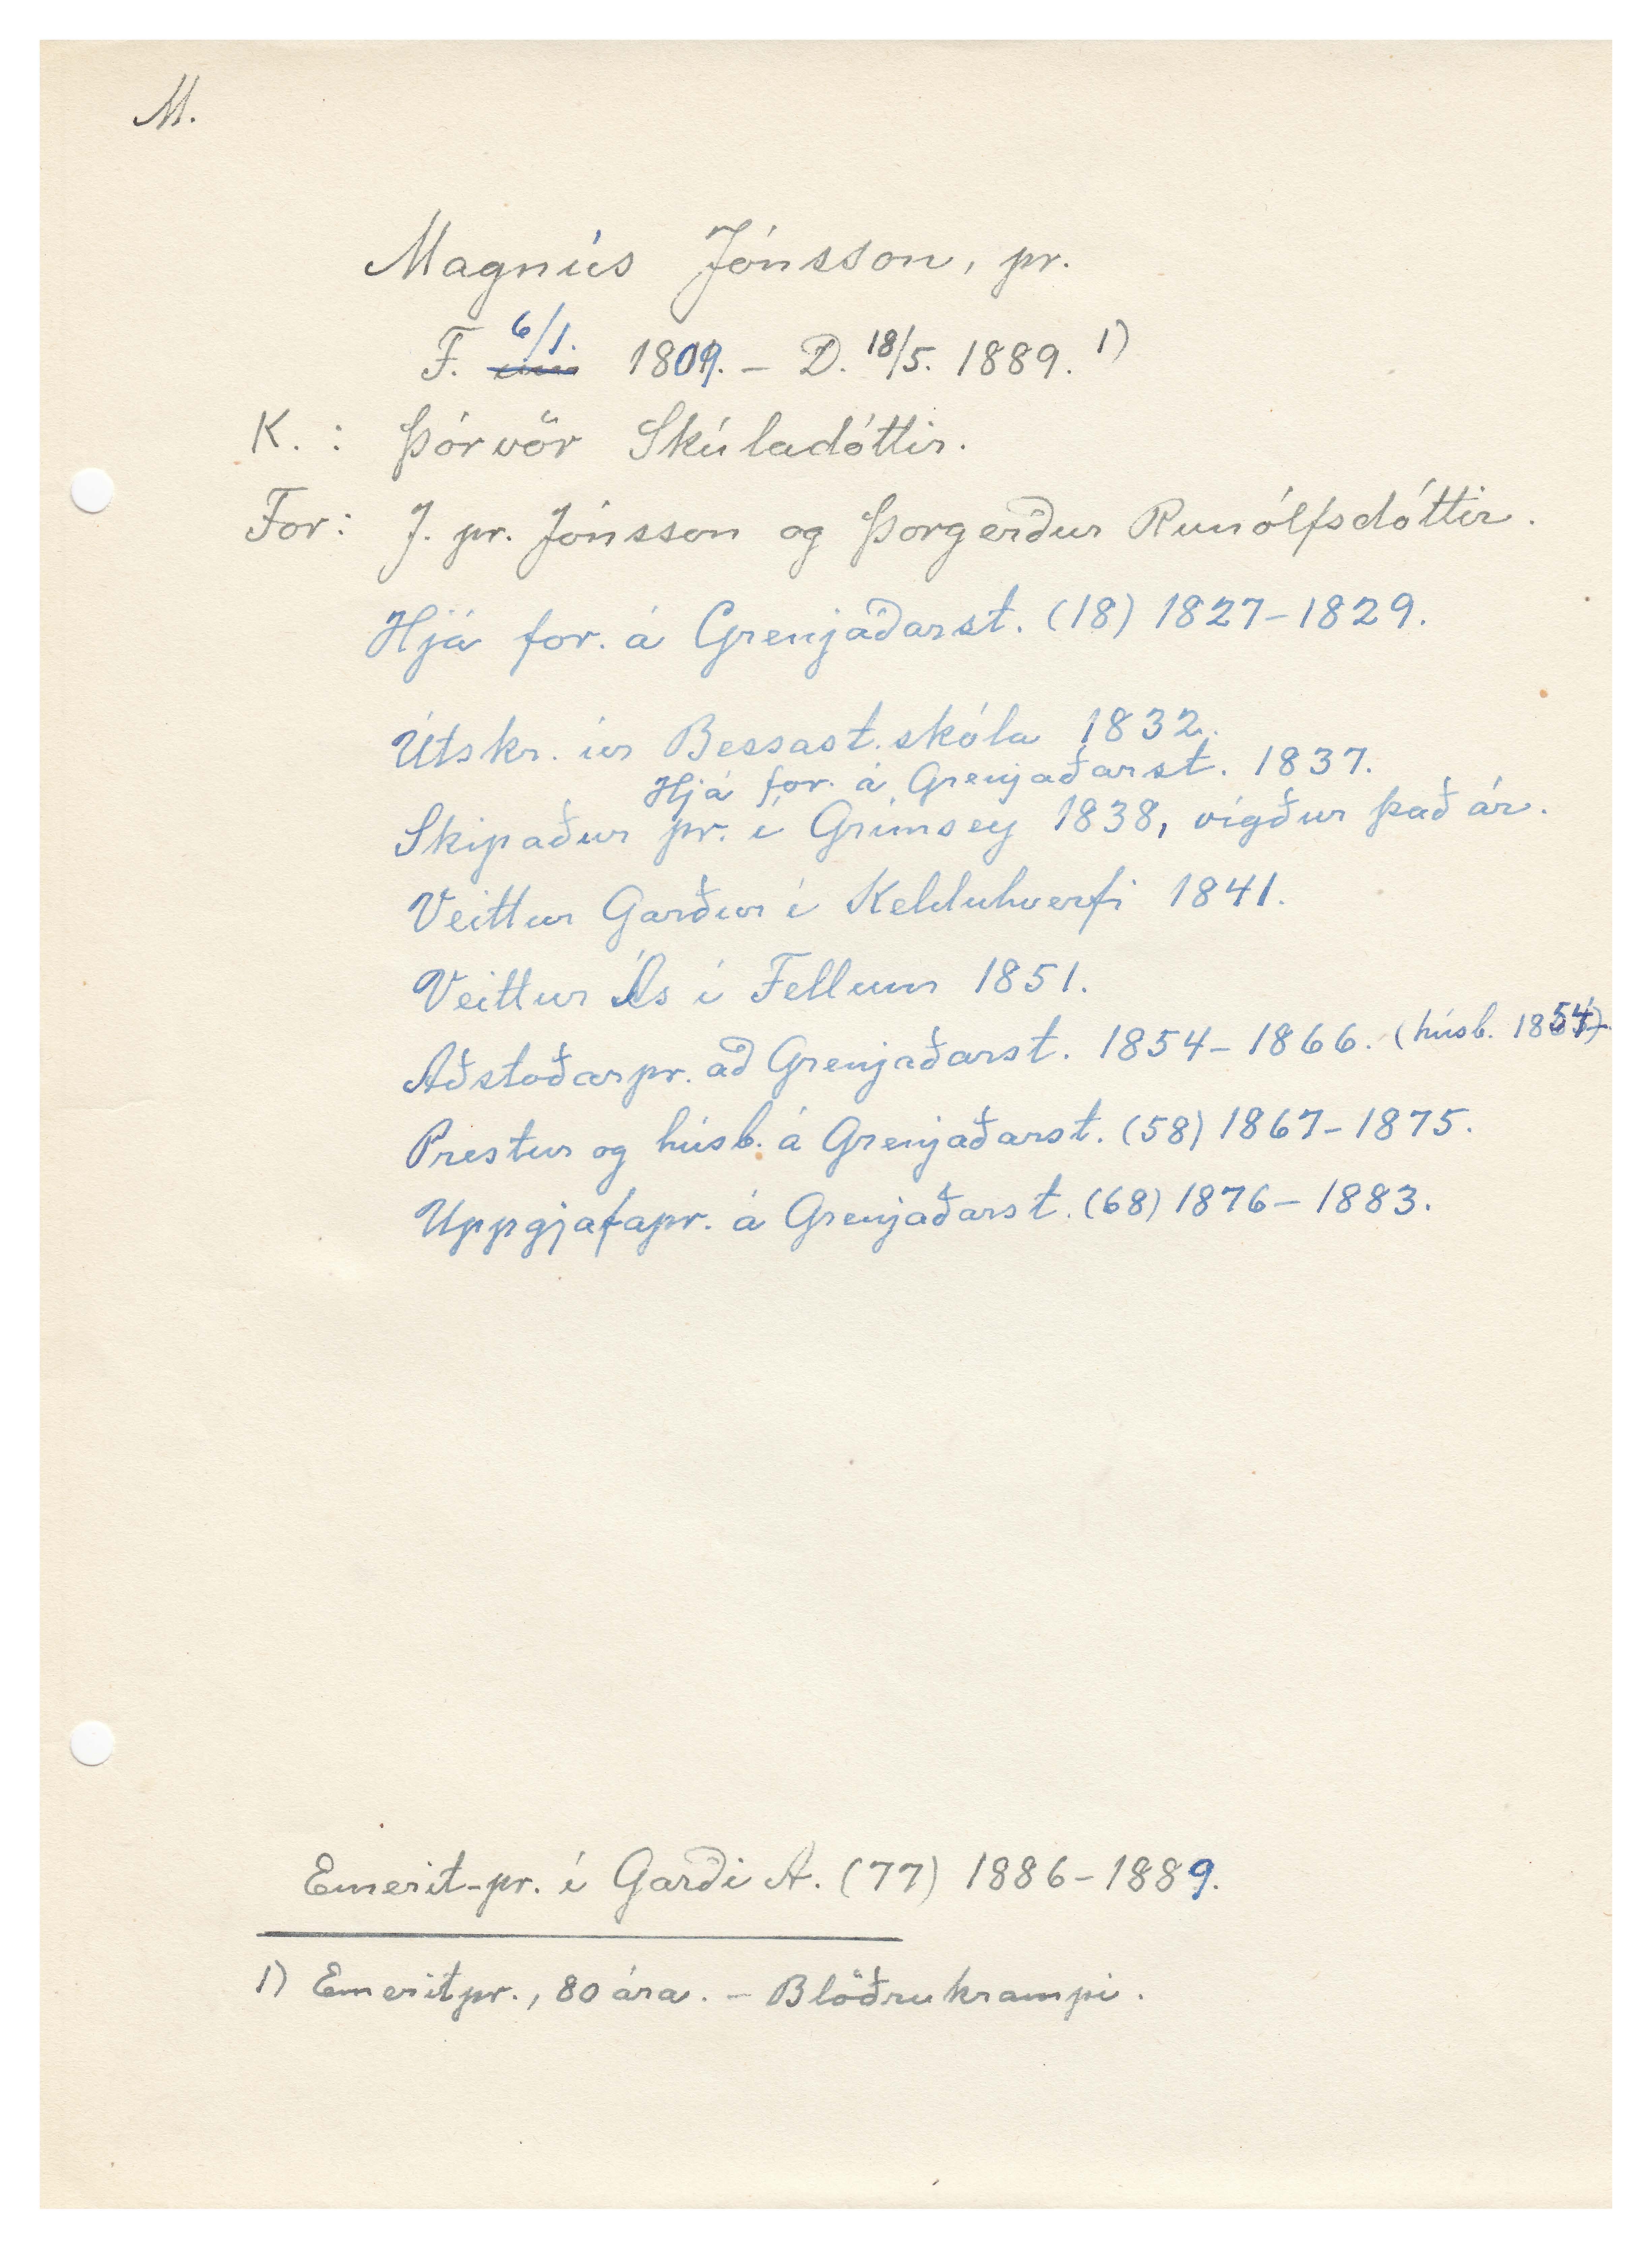 M.
Magnús Jónsson, pr.
F. 6/1. 1809. – D. 18/5. 1889. 1)
K. : Þórvör Skúladóttir.
For: J. pr. Jónsson og Þorgerður Runólfsdóttir.
Hjá for. á Grenjaðarst. (18) 1827–1829.
Útskr. úr Bessast. skóla 1832.
Hjá for. á Grenjaðarst. 1837.
Skipaður pr. í Grímsey 1838, vígður það ár.
Veittur Garður í Kelduhverfi 1841.
Veittur Ás í Fellum 1851.
Aðstoðarpr. að Grenjaðarst. 1854–1866. (húsb. 1854)
Prestur og húsb. á Grenjaðarst. (58) 1867–1875.
Uppgjafapr. á Grenjaðarst. (68) 1876–1883.
Emerit-pr. í Garði A. (77) 1886–1889.
1) Emeritpr., 80 ára. – Blöðrukrampi.